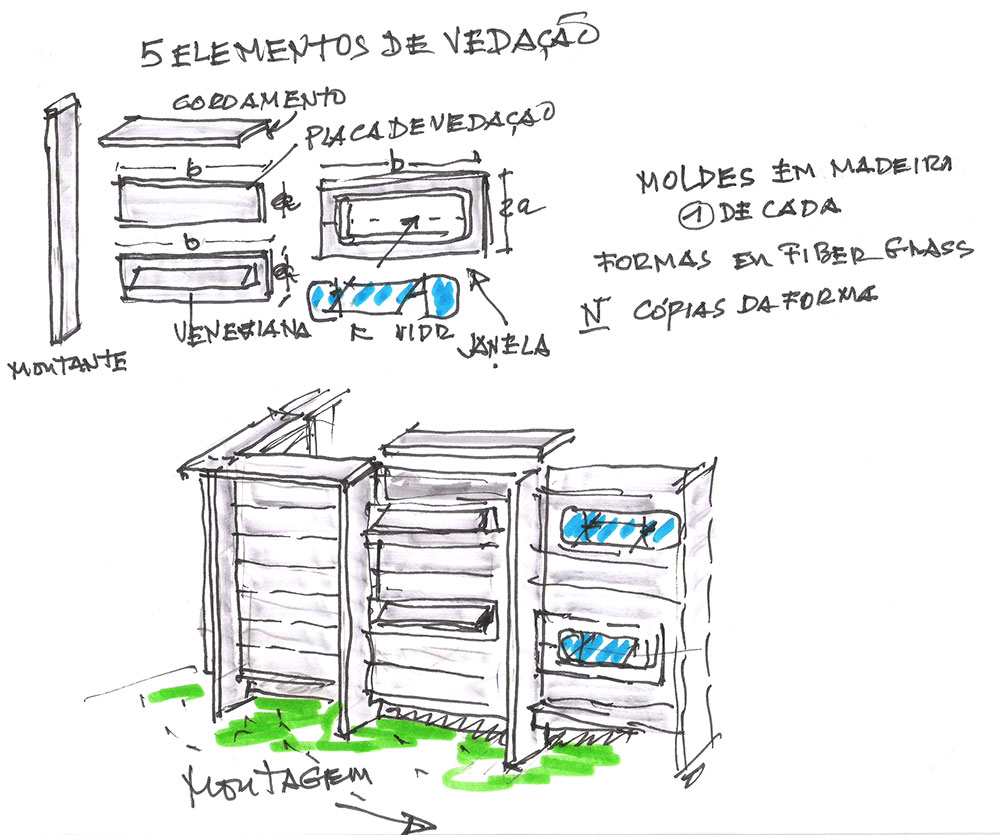 5 ELEMENTOS DE VEDAÇÃO
COROAMENTO
PLACA DE VEDAÇÃO
b
b
a
2a
b
a
VENEZIANA
VIDR
JANELA
MONTANTE
MOLDES EM MADEIRA
① DE CADA
FORMAS EM FIBER GLASS
N CÓPIAS DA FORMA
MONTAGEM